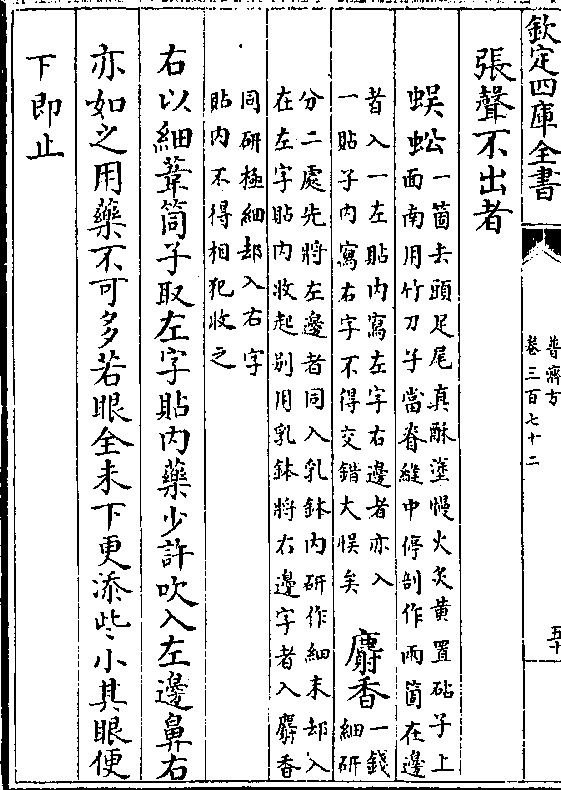 欽定四庫全書
普濟方
卷三百七十二
五十
張聲不出者
蜈蚣一箇去頭足尾真酥塗慢火炙黄置砧子上
面南用竹刀子當脊縫中停剖作兩箇在邊
者入一左貼内寫左字右邊者亦入
一貼子内寫右字不得交錯大悞矣
麝香一錢
細研
分二處先將左邊者同入乳鉢内研作細末却入
在左字貼内收起别用乳鉢將右邊字者入麝香
同研極細却入右字
貼内不得相犯收之
右以細葦筒子取左字貼内藥少許吹入左邊鼻右
亦如之用藥不可多若眼全未下更添些小其眼便
下即止